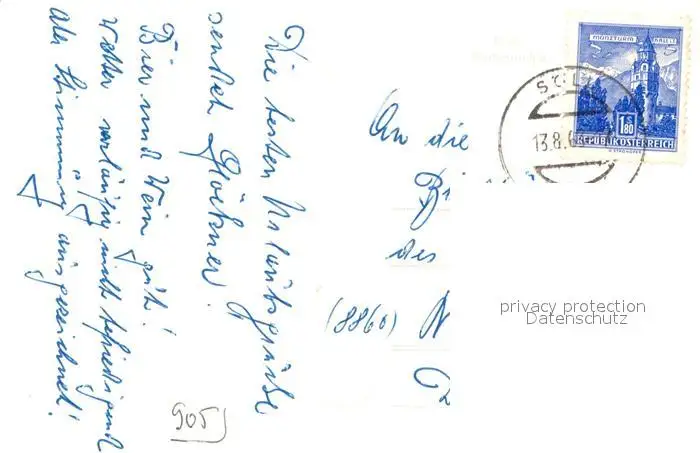 Die besten Urlaubsgrüße
sendet Glöckner.
Bier und Wein gut!
Wetter vorläufig nicht befriedigend
aber Stimmung ausgezeichnet!
An die
des
(8860) N
905
MÜNZTURM HALL I. T.
S
1.80
REPUBLIK ÖSTERREICH
13.8.6
privacy protection
Datenschutz